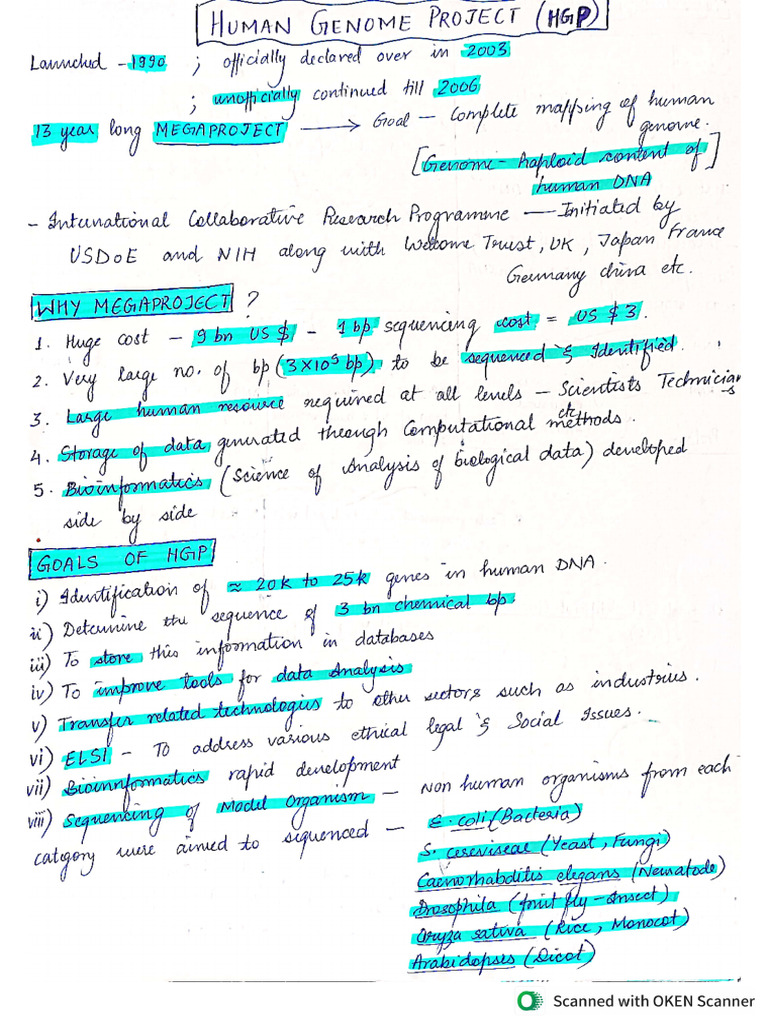 HUMAN GENOME PROJECT (HGP)
Launched - 1990 ; officially declared over in 2003
; unofficially continued till 2006
13 year long MEGAPROJECT → Goal - Complete mapping of human
genome.
[Genome - haploid content of]
human DNA
- International Collaborative Research Programme — Initiated by
USDoE and NIH along with Welcome Trust, UK, Japan France
Germany china etc.
WHY MEGAPROJECT ?
1. Huge cost - 9 bn US $ - 1 bp sequencing cost = US $ 3.
2. Very large no. of bp (3×10⁹ bp) to be sequenced & Identified.
3. Large human resource required at all levels - Scientists Technicians
etc
4. Storage of data generated through Computational methods.
5. Bioinformatics (Science of Analysis of biological data) developed
side by side
GOALS OF HGP
i) Identification of ≈ 20k to 25k genes in human DNA.
ii) Determine the sequence of 3 bn chemical bp
iii) To store this information in databases
iv) To improve tools for data Analysis
v) Transfer related technologies to other sectors such as industries.
vi) ELSI - To address various ethical legal & Social Issues.
vii) Bioinnformatics rapid development
viii) Sequencing of Model Organism - Non human organisms from each
category were aimed to sequenced - E. coli (Bacteria)
S. cereviseae (Yeast, Fungi)
Caenorhabditis elegans (Nematode)
Drosophila (fruit fly - Insect)
Oryza sativa (Rice, Monocot)
Arabidopses (Dicot)
Scanned with OKEN Scanner